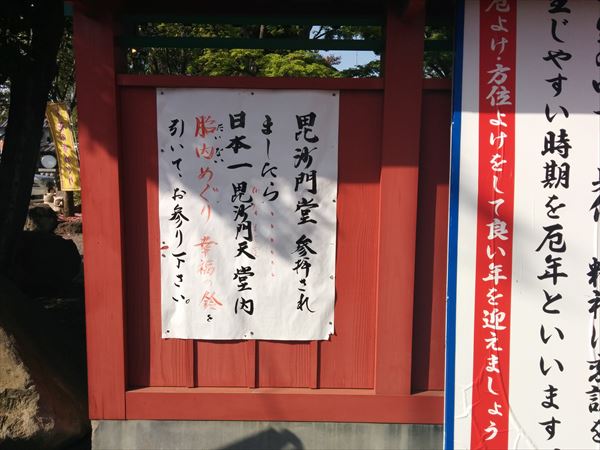 毘沙門堂 参拝され
ましたら
日本一 毘沙門天 堂内
たいない
胎内めぐり 幸福の鈴を
引いて、お参り下さい。
生じやすい時期を厄年といいます。
厄よけ・方位よけをして良い年を迎えましょう